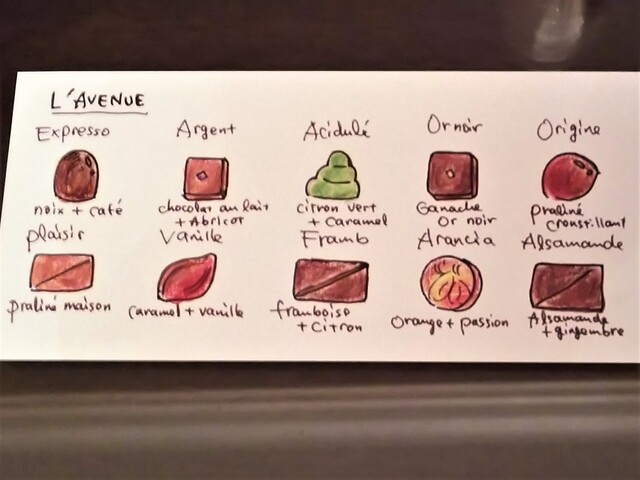 L'AVENUE
Expresso Argent Acidulé Or noir Origine
noix + café
chocolat au lait
+ Abricot
citron vert
+ caramel
Ganache
Or noir
praliné
croustillant
plaisir Vanille Framb Arancia Alsamande
praliné maison
caramel + vanille
framboise
+ citron
Orange + passion
Alsamande
+ gingembre